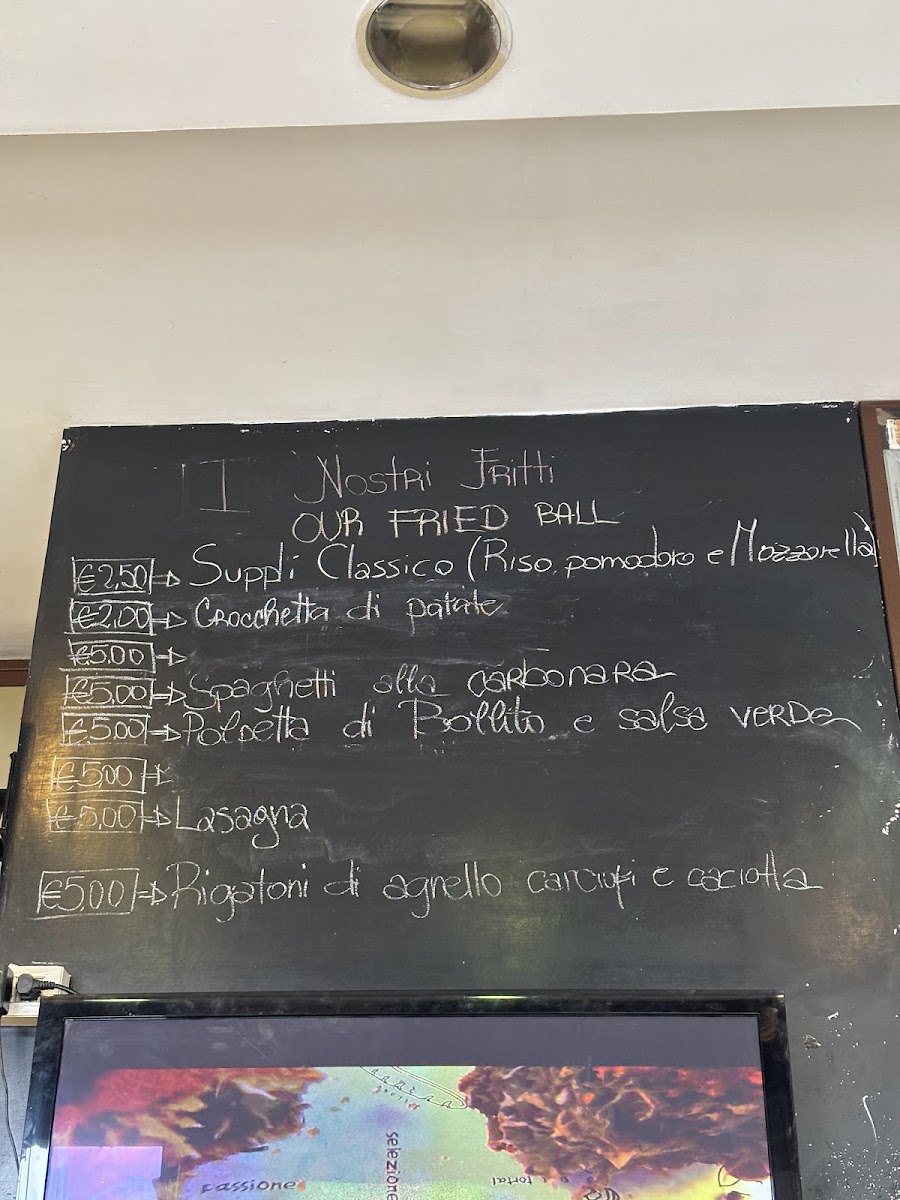 I Nostri Fritti
OUR FRIED BALL
€2,50 Supplì Classico (Riso, pomodoro e Mozzarella)
€2,00 Crocchetta di patate
€5,00
€5,00 Spaghetti alla carbonara
€5,00 Polpetta di Bollito e salsa VERDE
€5,00
€5,00 Lasagna
€5,00 Rigatoni di agnello carciofi e caciotta
selezione
passione